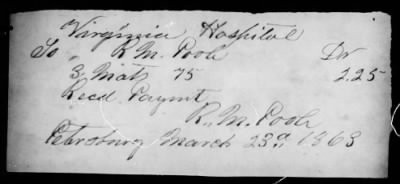 Virginia Hospital
To R. M. Poole Dr
3 Mats 75 2.25
Recd Paymt
R. M. Poole
Petersburg March 23d 1863